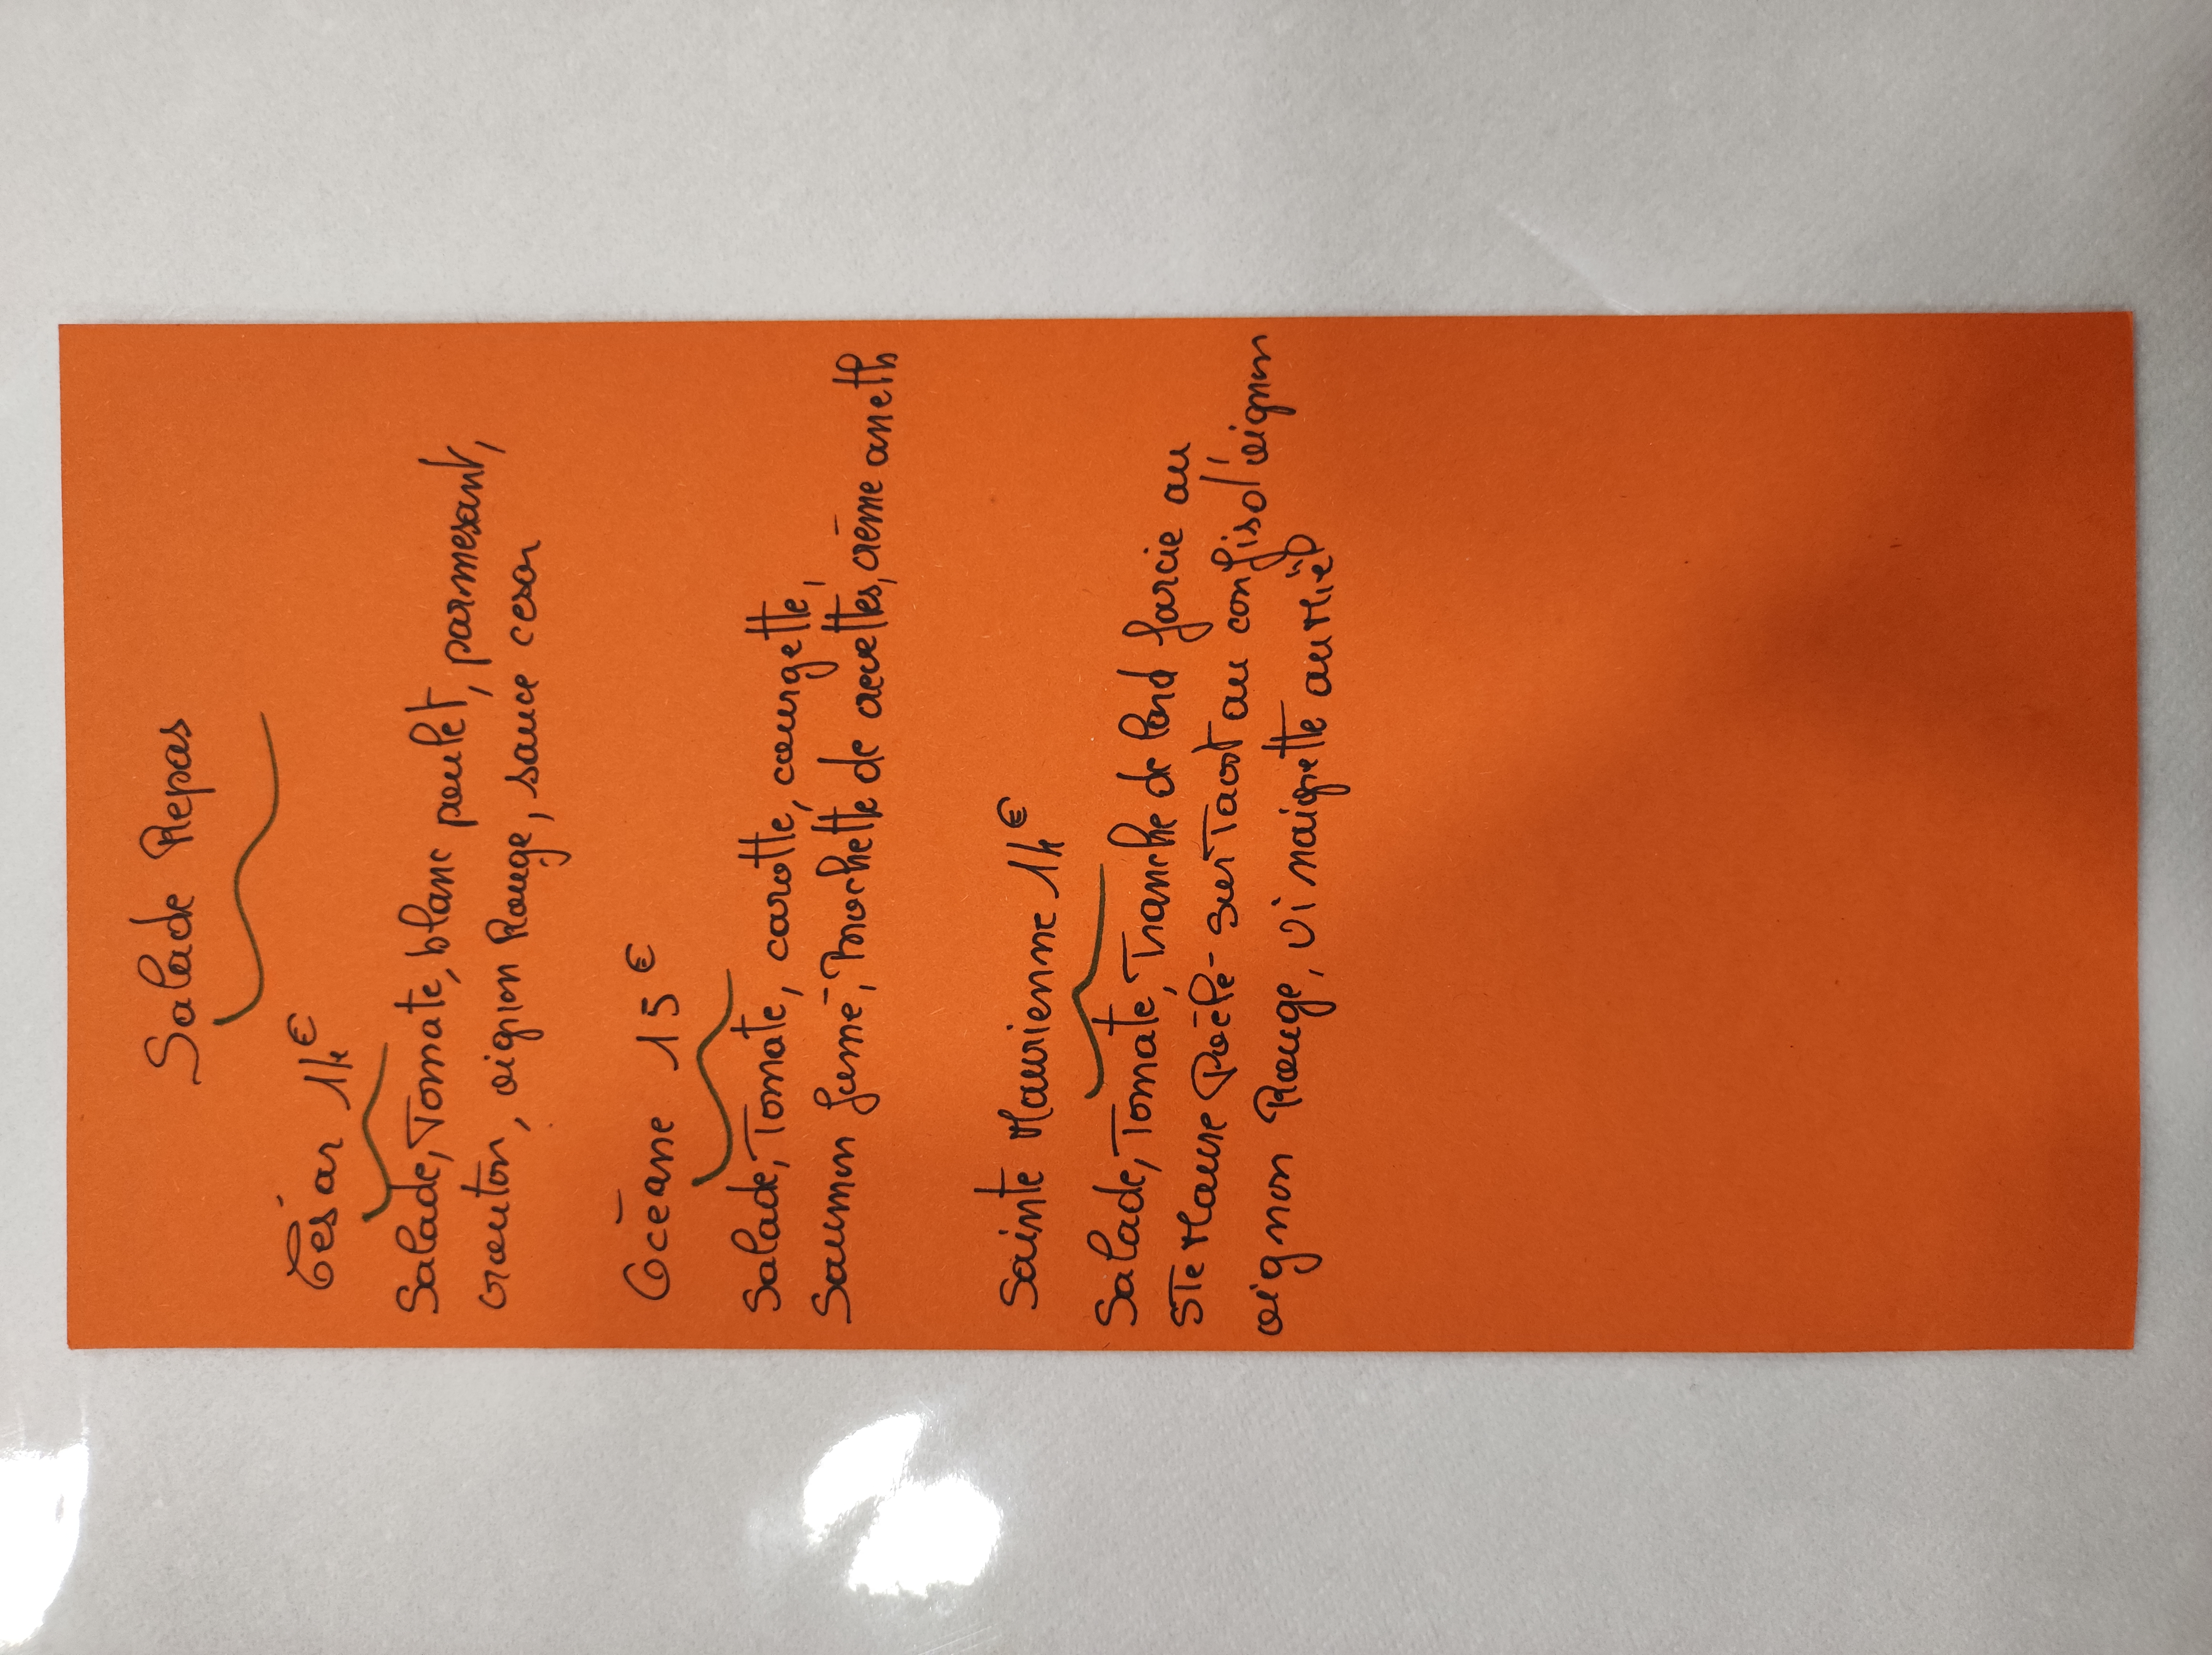 Salade Repas
César 14€
Salade, Tomate, blanc poulet, parmesant,
crouton, oignon Rouge, sauce cesar
Océane 15€
Salade, Tomate, carotte, courgette,
Saumon fumé, brochette de crevettes, crème aneth
Sainte Maurienne 14€
Salade, Tomate, Tranche de lard farcie au
STe Maure Poêlé - sur Taost au confis d'oignon
oignon Rouge, vinaigrette au Miel